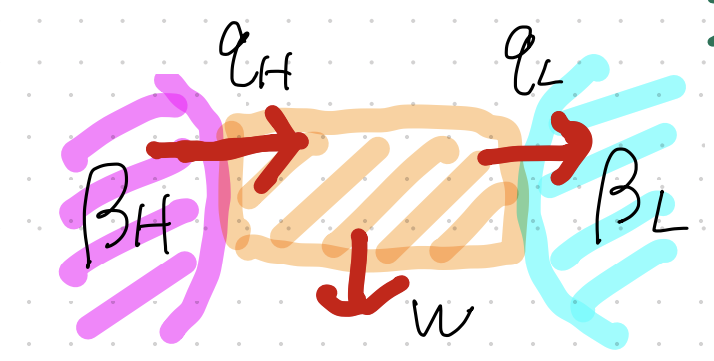 q_H q_L
β_H β_L
W